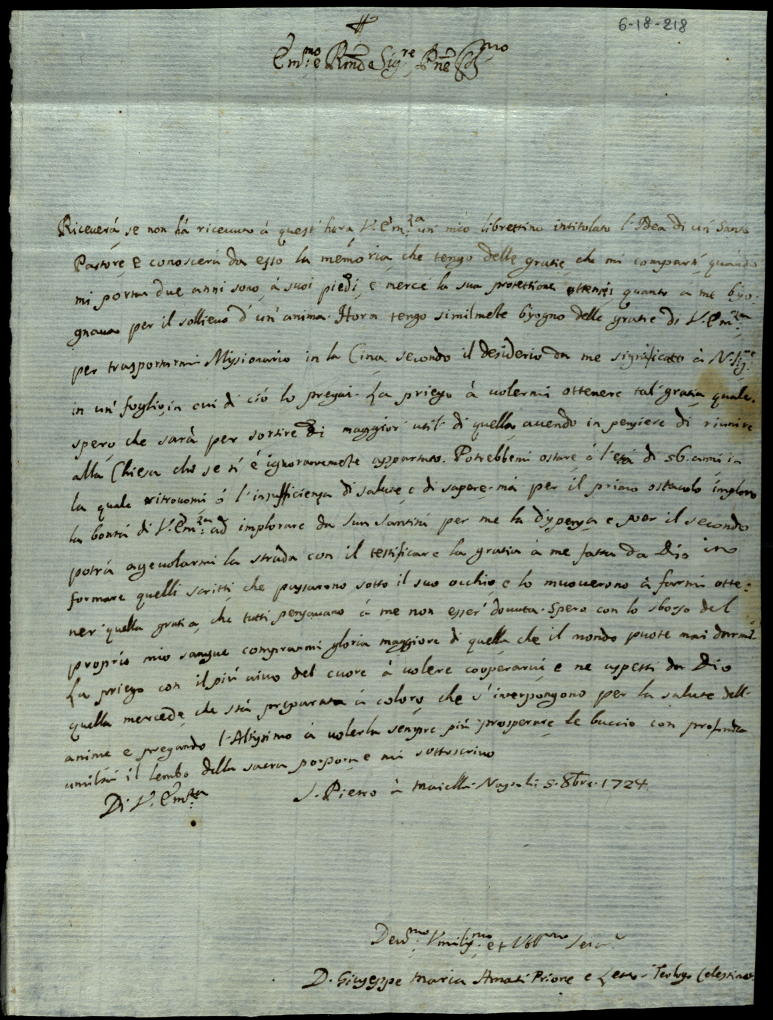 6-18-218
Em.mo e Rmo Sig.re Pne Col.mo
Riceverà se non hà ricevuto à quest'hora V. Em.za un mio librettino intitolato l'Idea di un Santo
Pastore, e conoscerà da esso la memoria, che tengo delle gratie, che mi compartì, quando
mi portai due anni sono, à suoi piedi, e mercè la sua protettione ottenni quanto à me byso-
gnava per il sollievo d'un'anima. Hora tengo similmete bysogno delle gratie di V. Em.za
per trasportarmi Missionario in la Cina, secondo il desiderio da me significato à N. Sig.re
in un foglio, in cui di ciò lo pregai. La priego à volermi ottenere tal gratia, quale
spero, che sarà per sortire di maggior' util' di quella, avendo in pensiere di riunire
alla Chiesa chi se n'è ignorantemete appartato. Potrebbemi ostare ò l'età di 56. anni in
la quale ritrovomi ò l'insufficienza di salute, e di sapere, mà per il primo ostacolo imploro
la bontà di V. Em.za ad implorare da sua santità per me la dispensa, e per il secondo
potrà agevolarmi la strada con il testificare la gratia à me fatta da Dio in
formare quelli scritti che passarono sotto il suo occhio e lo muoverono à farmi otte-
ner' quella gratia, che tutti pensavano à me non esser' dovuta. Spero con lo sborso del
proprio mio sangue comprarmi gloria maggiore di quella che il mondo puote mai darmi.
La priego con il più vivo del cuore à volere cooperarvi e ne aspetti da Dio
quella mercede, che stà preparata à coloro, che s'interpongono per la salute dell'
anime e pregando l'Altissimo à volerla sempre più prosperare le buccio con profonda
umiltà il lembo della sacra porpora e mi sottoscrivo
Di V. Em.za S. Pietro à Maiella Napoli 5. 8bre. 1724
Dev.mo Umiliss.mo et Obb.mo Serv.e
D. Giuseppe Maria Amati Priore e Lett. Teologo Celestino